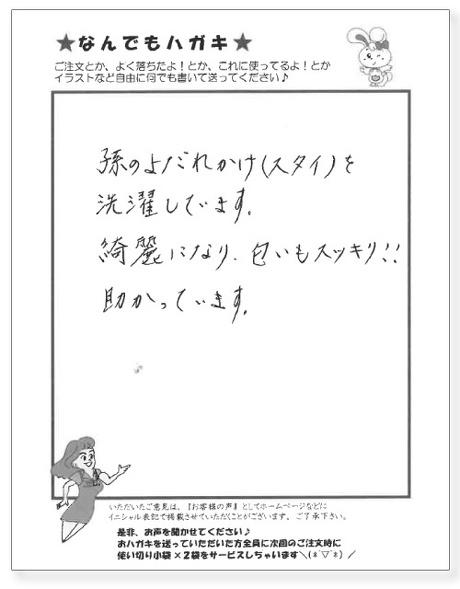 ★なんでもハガキ★
ご注文とか、よく落ちたよ!とか、これに使ってるよ!とか
イラストなど自由に何でも書いて送ってください♪
孫のよだれかけ(スタイ)を
洗濯しています。
綺麗になり、匂いもスッキリ!!
助かっています。
いただいたご意見は、『お客様の声』としてホームページなどに
イニシャル表記で掲載させていただくことがございます。ご了承下さい。
是非、お声を聞かせてください♪
おハガキを送っていただいた方全員に次回のご注文時に
使い切り小袋×2袋をサービスしちゃいます＼(*´▽`*)／